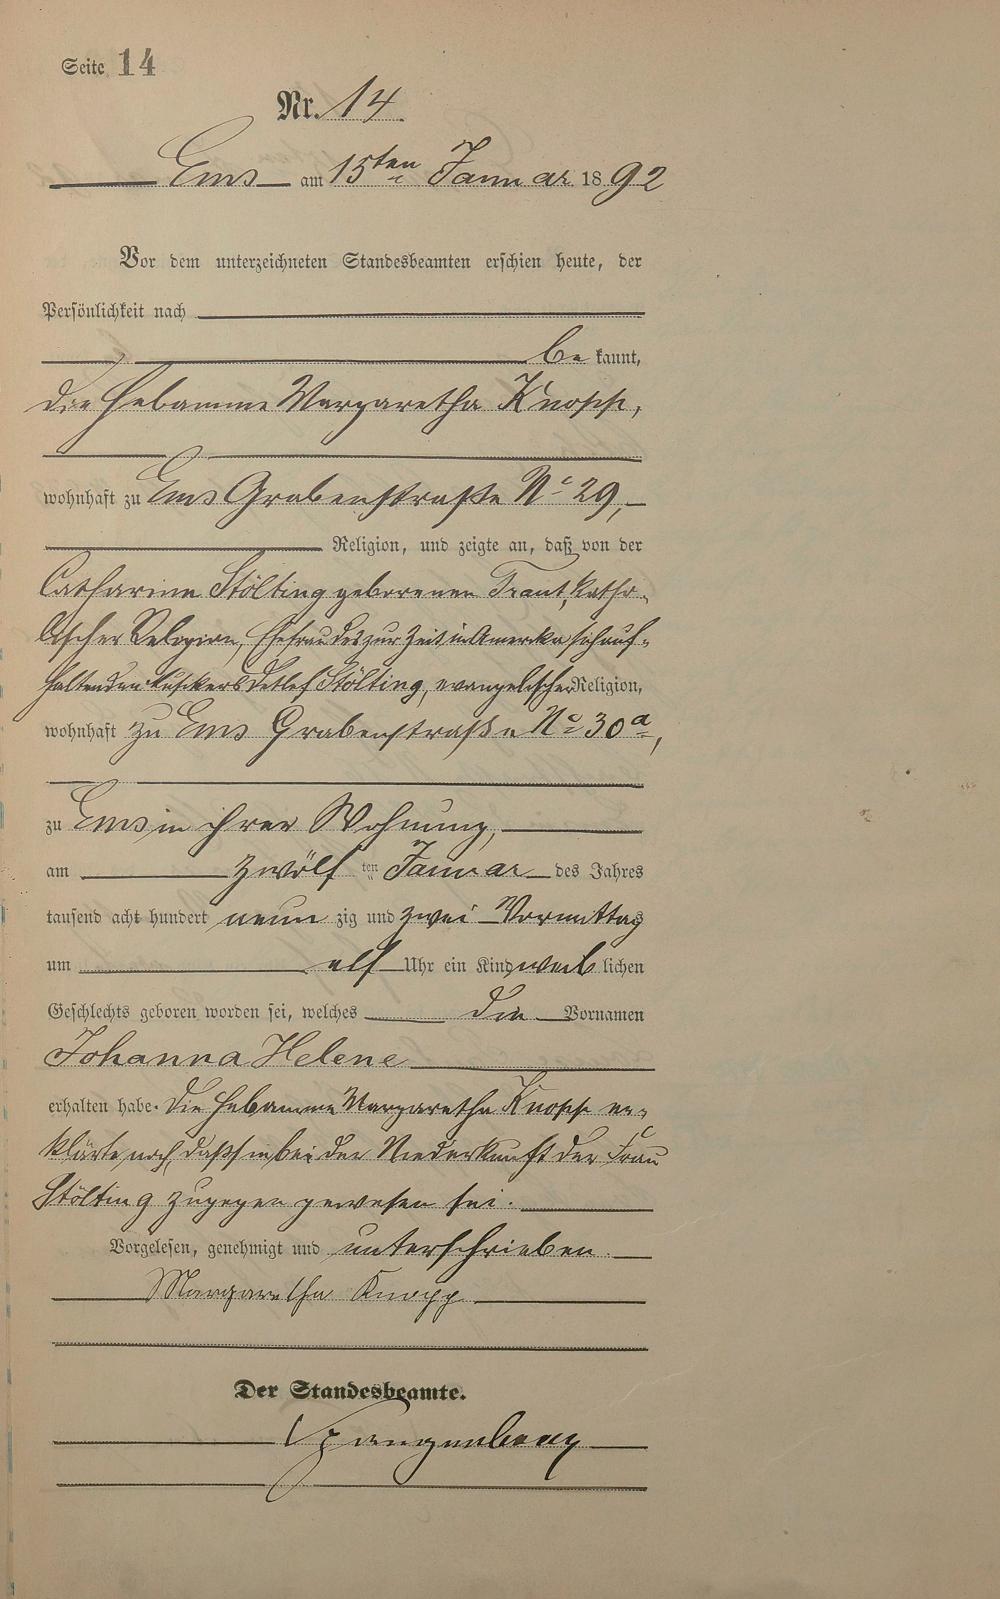 Seite 14
Nr. 14
Ems am 15ten Januar 1892
Vor dem unterzeichneten Standesbeamten erschien heute, der
Persönlichkeit nach
bekannt,
die Hebamme Margaretha Knopp,
wohnhaft zu Ems Grabenstraße No 29,
Religion, und zeigte an, daß von der
Catharina Stölting geborenen Traut, katho-
lischer Religion, Ehefrau des zur Zeit in Amerika sich auf-
haltenden Musikers Detlef Stölting, evangelischer Religion,
wohnhaft zu Ems Grabenstraße No 30a,
zu Ems in ihrer Wohnung,
am zwölften Januar des Jahres
tausend acht hundert neunzig und zwei Vormittag
um elf Uhr ein Kind weiblichen
Geschlechts geboren worden sei, welches die Vornamen
Johanna Helene
erhalten habe. Die Hebamme Margaretha Knopp er-
klärte noch, daß sie bei der Niederkunft der Frau
Stölting zugegen gewesen sei.
Vorgelesen, genehmigt und unterschrieben.
Margaretha Knopp
Der Standesbeamte.
Spangenberg